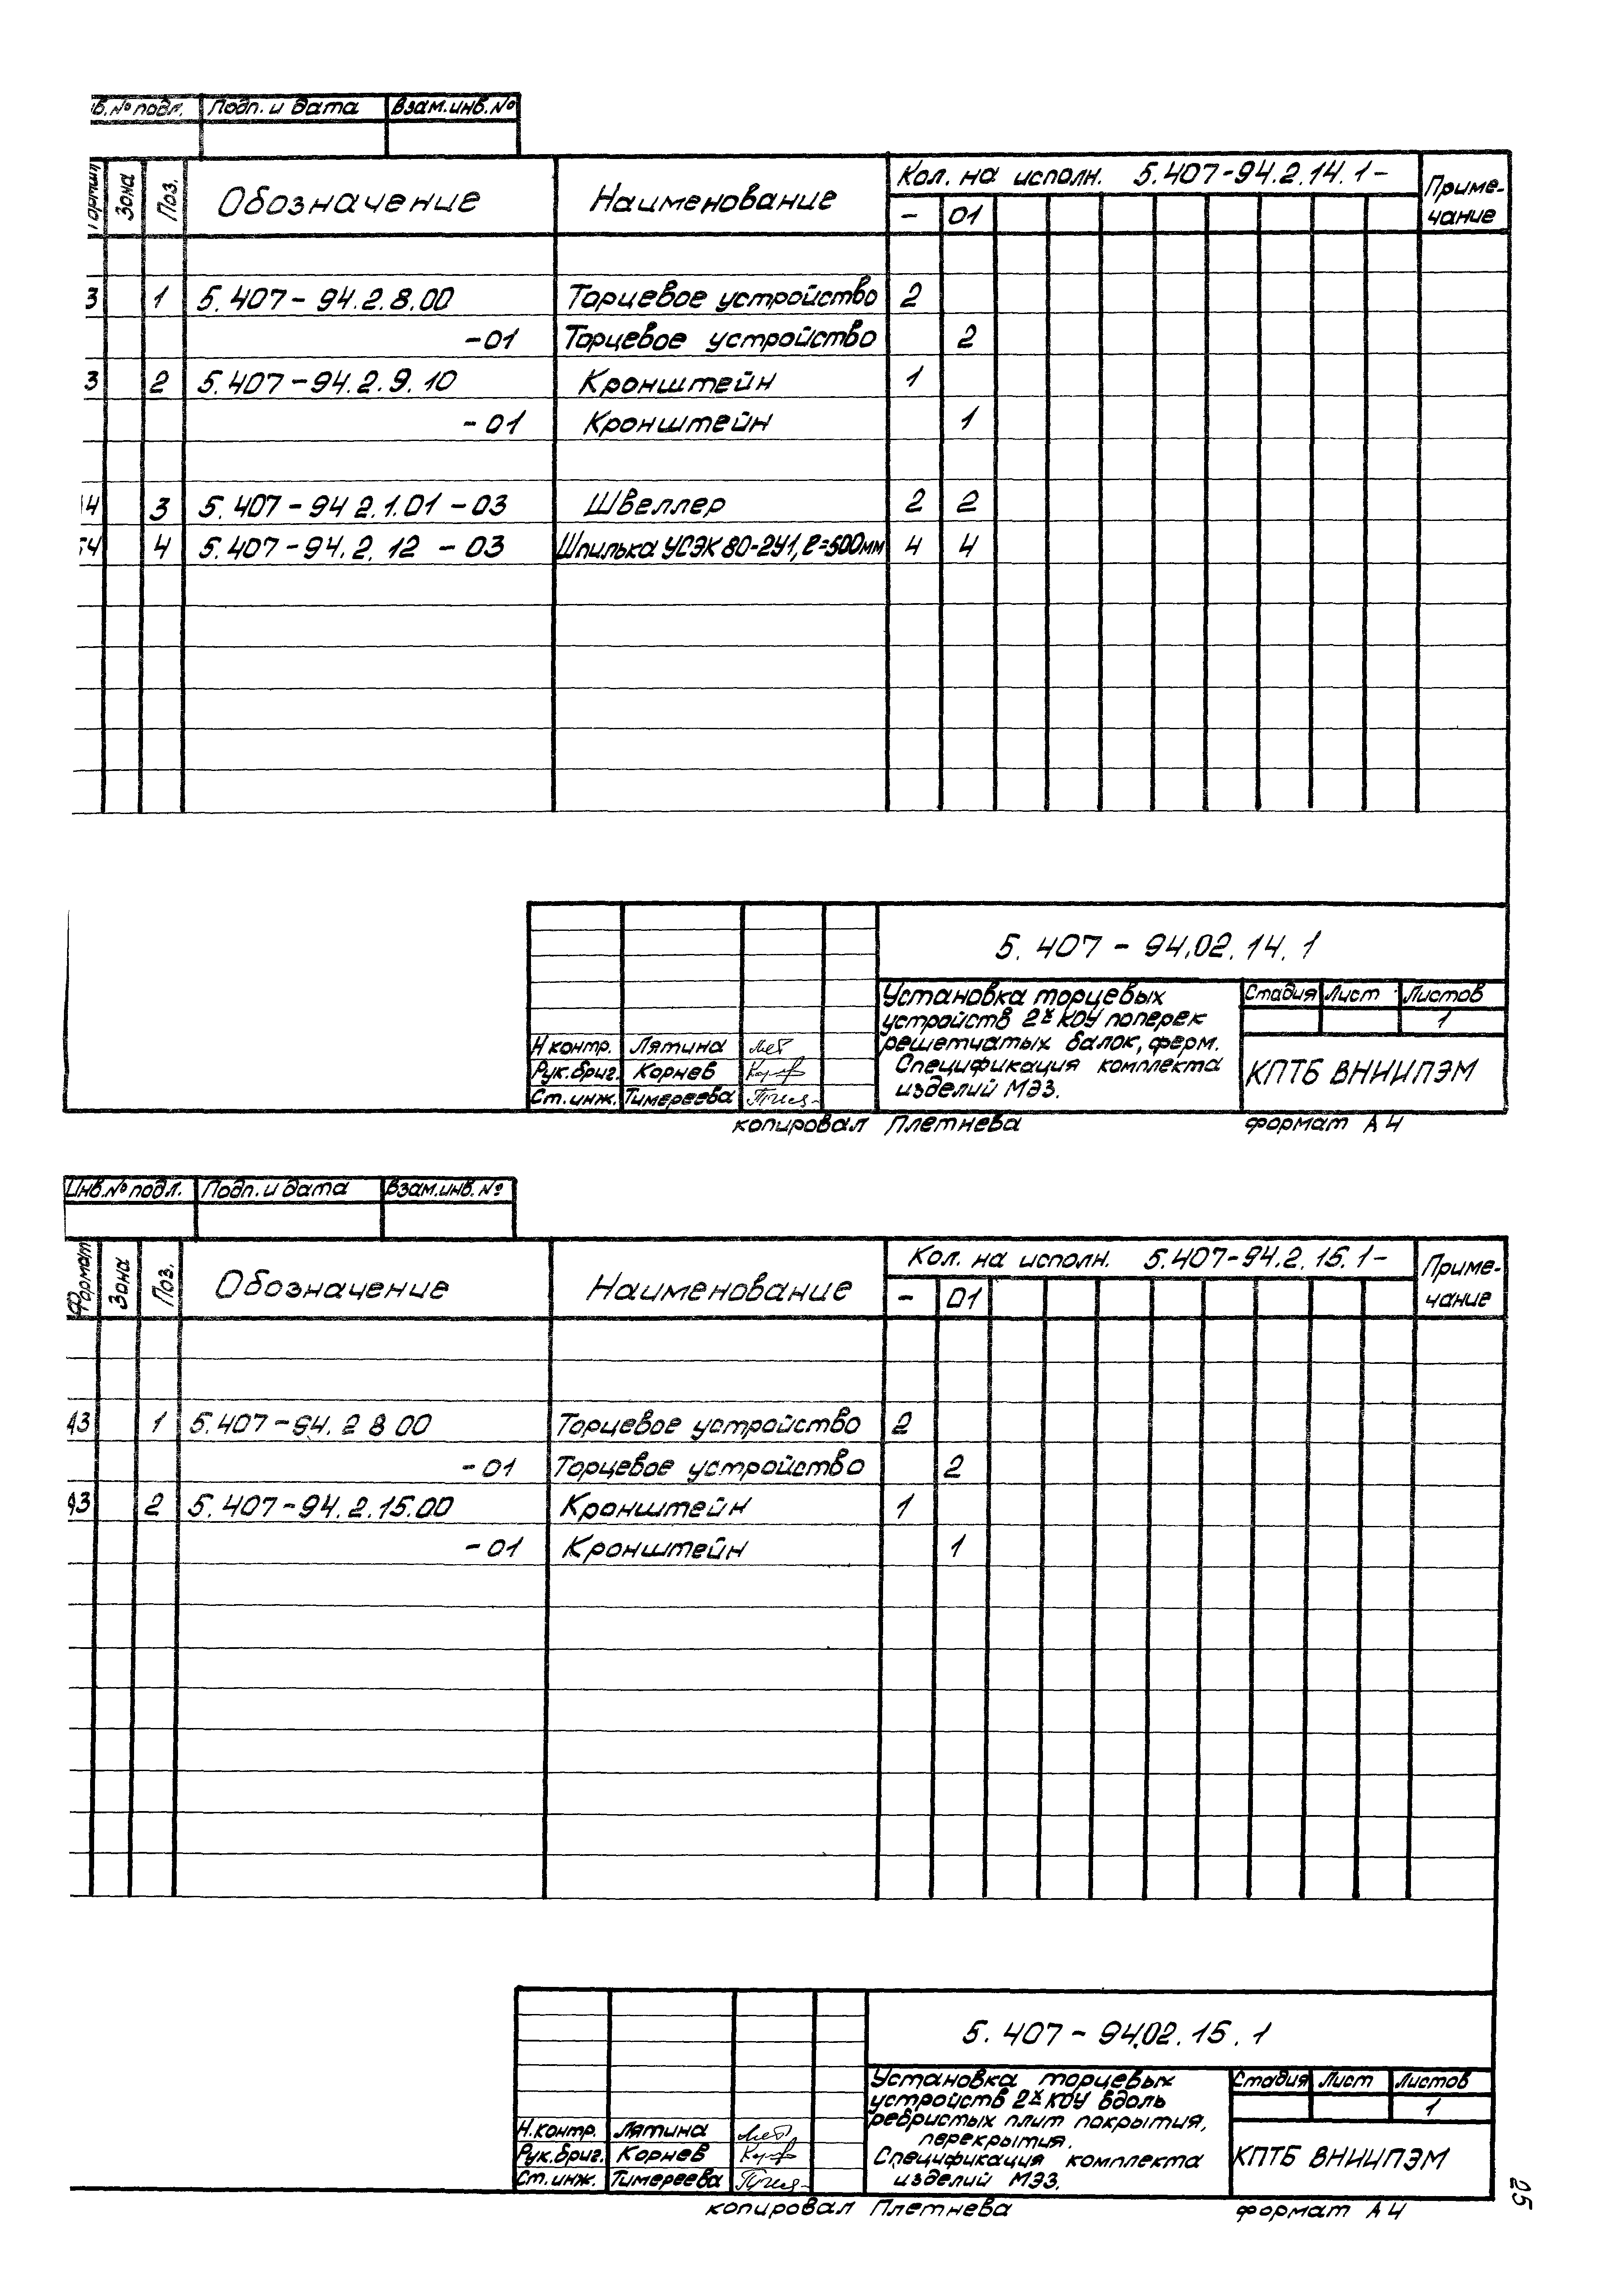 в.№ подл. Подп. и дата Взам.инв.№
Зона Поз. Обозначение Наименование Кол. на исполн. 5.407-94.2.14.1- Приме-
- 01 чание
3 1 5.407-94.2.8.00 Торцевое устройство 2
-01 Торцевое устройство 2
3 2 5.407-94.2.9.10 Кронштейн 1
-01 Кронштейн 1
4 3 5.407-94 2.1.01-03 Швеллер 2 2
4 4 5.407-94.2.12 -03 Шпилька УСЭК 80-2У1, ℓ=500мм 4 4
5.407-94.02.14.1
Установка торцевых
устройств 2х КОУ поперек
решетчатых балок, ферм.
Спецификация комплекта
изделий МЭЗ.
Стадия Лист Листов
1
КПТБ ВНИИПЭМ
Н контр. Лятина
Рук.бриг. Корнев
Ст.инж. Тимереева
копировал Плетнева формат А4
Инв.№ подл. Подп. и дата Взам.инв.№
Формат Зона Поз. Обозначение Наименование Кол. на исполн. 5.407-94.2.15.1- Приме-
- 01 чание
А3 1 5.407-94.2 8 00 Торцевое устройство 2
-01 Торцевое устройство 2
А3 2 5.407-94.2.15.00 Кронштейн 1
-01 Кронштейн 1
5.407-94.02.15.1
Установка торцевых
устройств 2х КОУ вдоль
ребристых плит покрытия,
перекрытия.
Спецификация комплекта
изделий МЭЗ.
Стадия Лист Листов
1
КПТБ ВНИИПЭМ
Н.контр. Лятина
Рук.бриг. Корнев
Ст.инж. Тимереева
копировал Плетнева формат А4
25